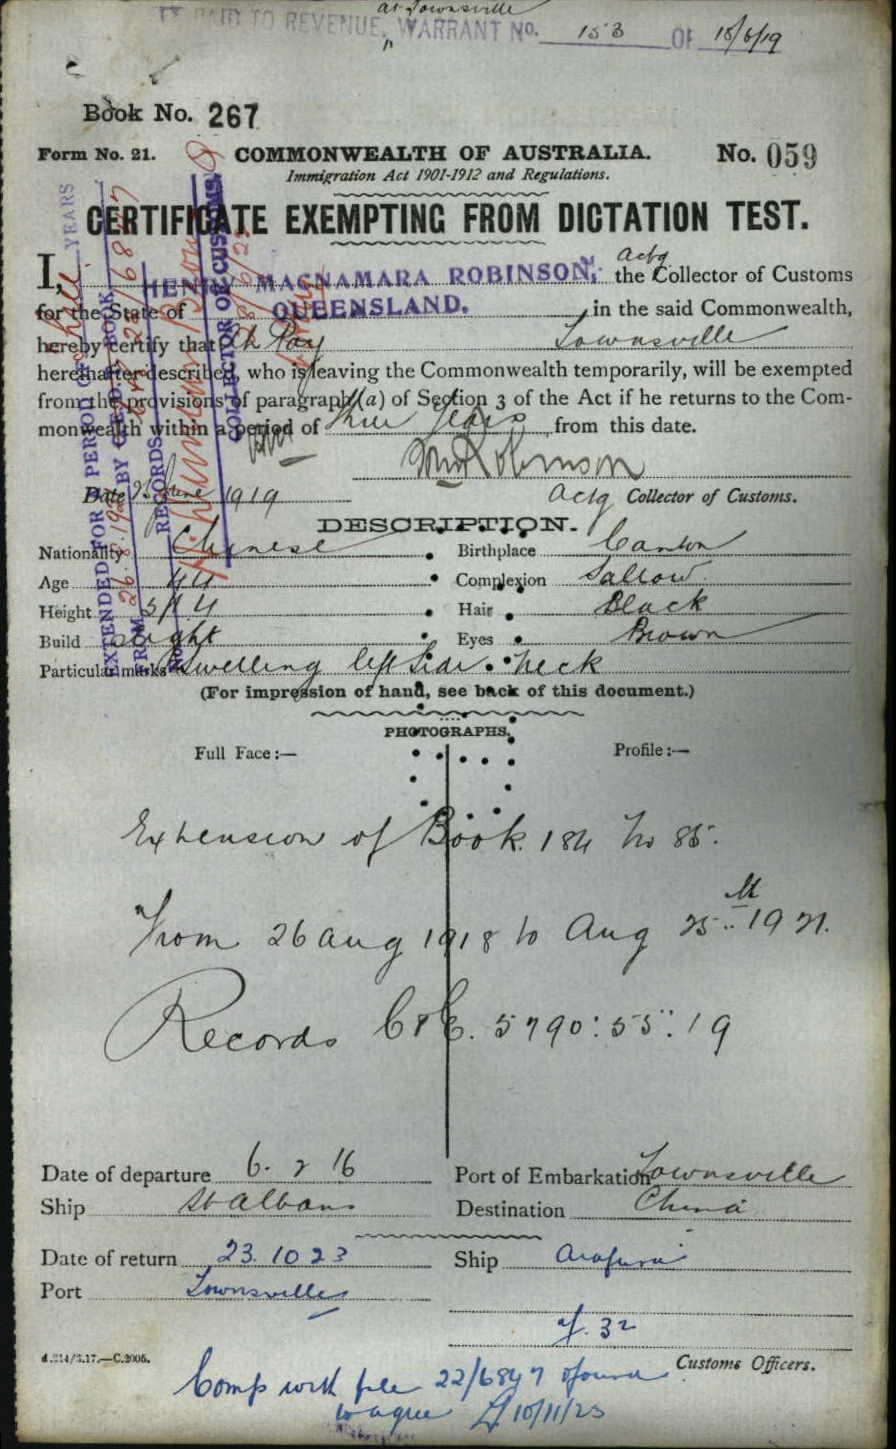 at Townsville
PAID TO REVENUE, WARRANT No. 153 OF 18/6/19
Book No. 267
Form No. 21. COMMONWEALTH OF AUSTRALIA. No. 059
Immigration Act 1901-1912 and Regulations.
CERTIFICATE EXEMPTING FROM DICTATION TEST.
I, HENRY MACNAMARA ROBINSON, the Actg Collector of Customs
for the State of QUEENSLAND. in the said Commonwealth,
hereby certify that Ah Pay Townsville
hereinafter described, who is leaving the Commonwealth temporarily, will be exempted
from the provisions of paragraph (a) of Section 3 of the Act if he returns to the Com-
monwealth within a period of three years from this date.
HM Robinson
Date 25 June 1919 Actg Collector of Customs.
EXTENDED FOR A PERIOD OF three YEARS
FROM 26.8.1921 BY C.E.D.T. BOOK
RECORDS
COLLECTOR OF CUSTOMS, Q
DESCRIPTION.
Nationality Chinese Birthplace Canton
Age 44 Complexion Sallow
Height 5ft 4 Hair Black
Build Slight Eyes Brown
Particular marks Swelling left side neck
(For impression of hand, see back of this document.)
PHOTOGRAPHS.
Full Face:— Profile:—
Extension of Book 184 No 85.
From 26 Aug 1918 to Aug 25th 1921.
Records C&E. 5790:55:19
Date of departure 6. 2 16 Port of Embarkation Townsville
Ship St Albans Destination China
Date of return 23. 10 23 Ship Arafura
Port Townsville
f. 32
d.214/3.17.—C.2006. Customs Officers.
Comp with file 22/6847 & found
to agree 10/11/23